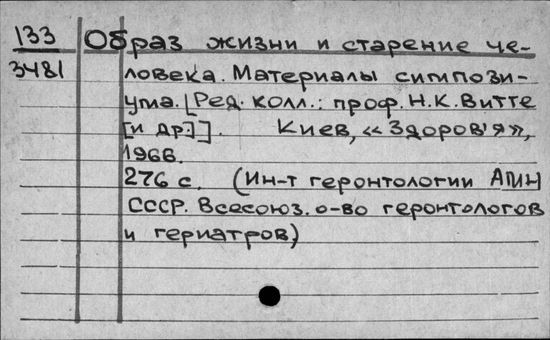 133 Образ жизни и старение че-
3481 ловека. Материалы симпози-
ума. [Ред. колл.: проф. Н.К. Витте
[и др.]]. Киев, «Здоров'я»,
1966.
276 с. (Ин-т геронтологии АМН
СССР. Всесоюз. о-во геронтологов
и гериатров)